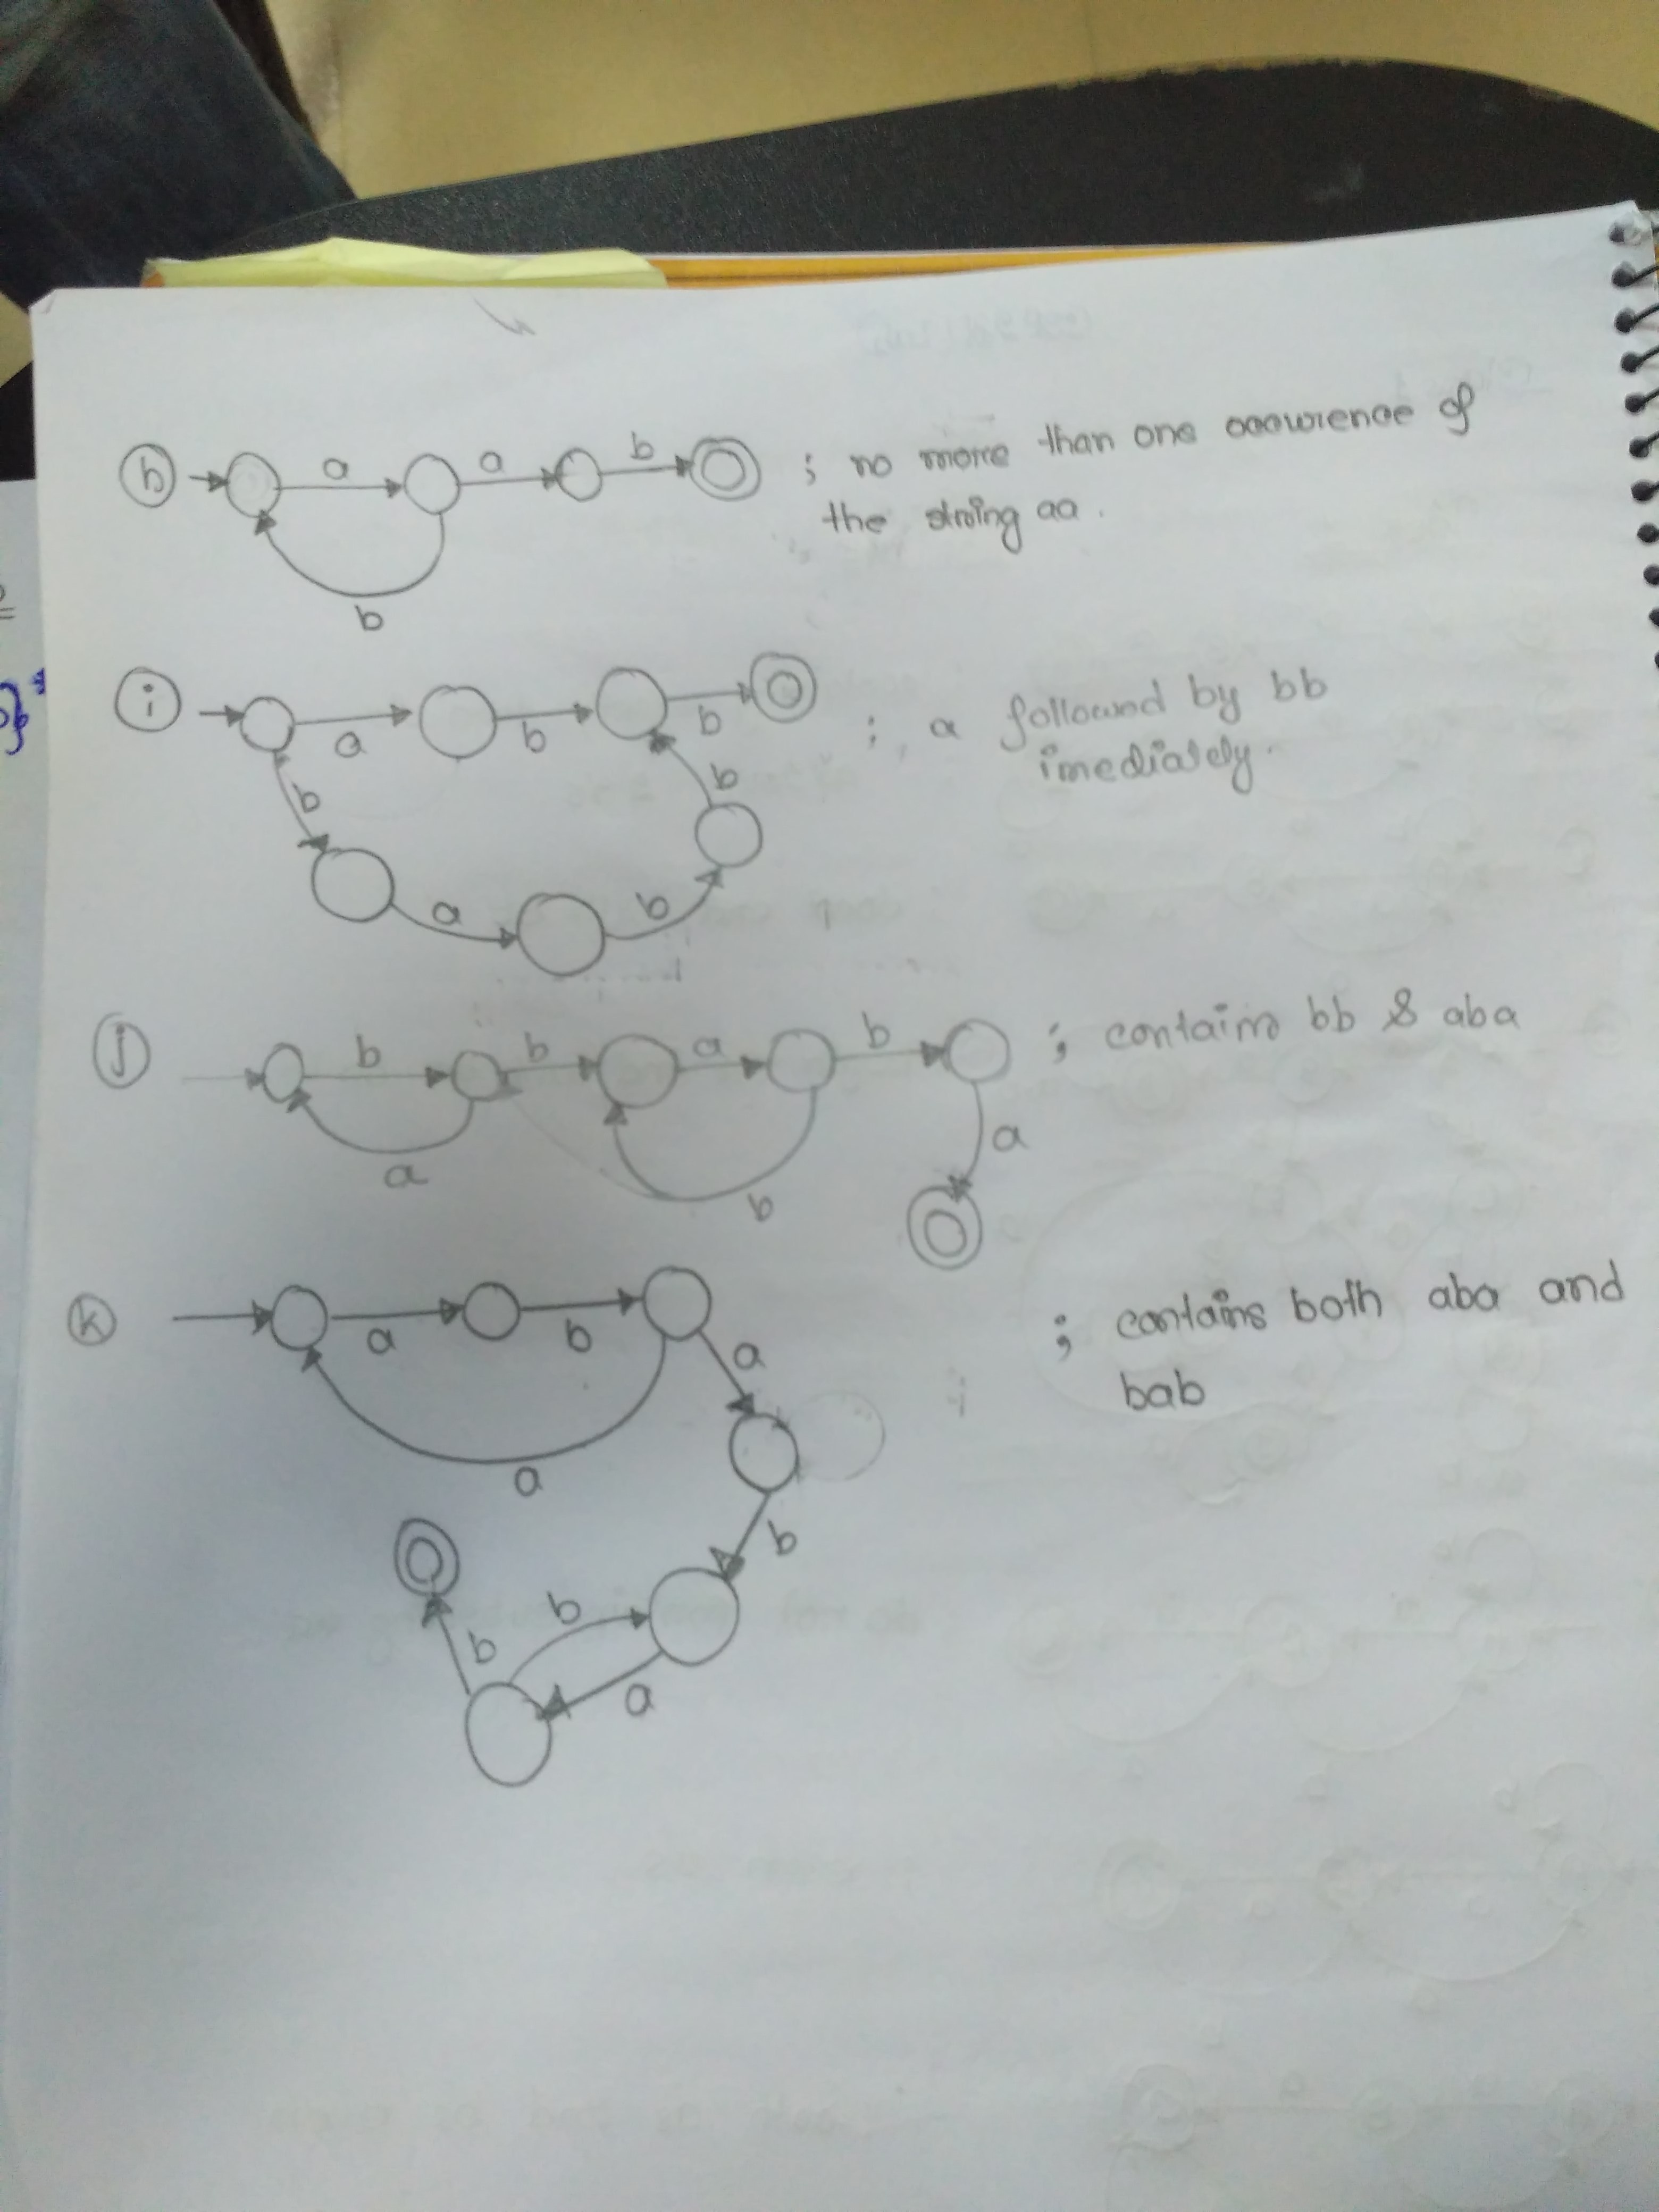 h a a b ; no more than one occurrence of
the string aa.
b
i a b b ; a followed by bb
imediately.
b b
a b
j b b a b ; contains bb & aba
a b a
k a b a ; contains both aba and
bab
a
b
b b
a